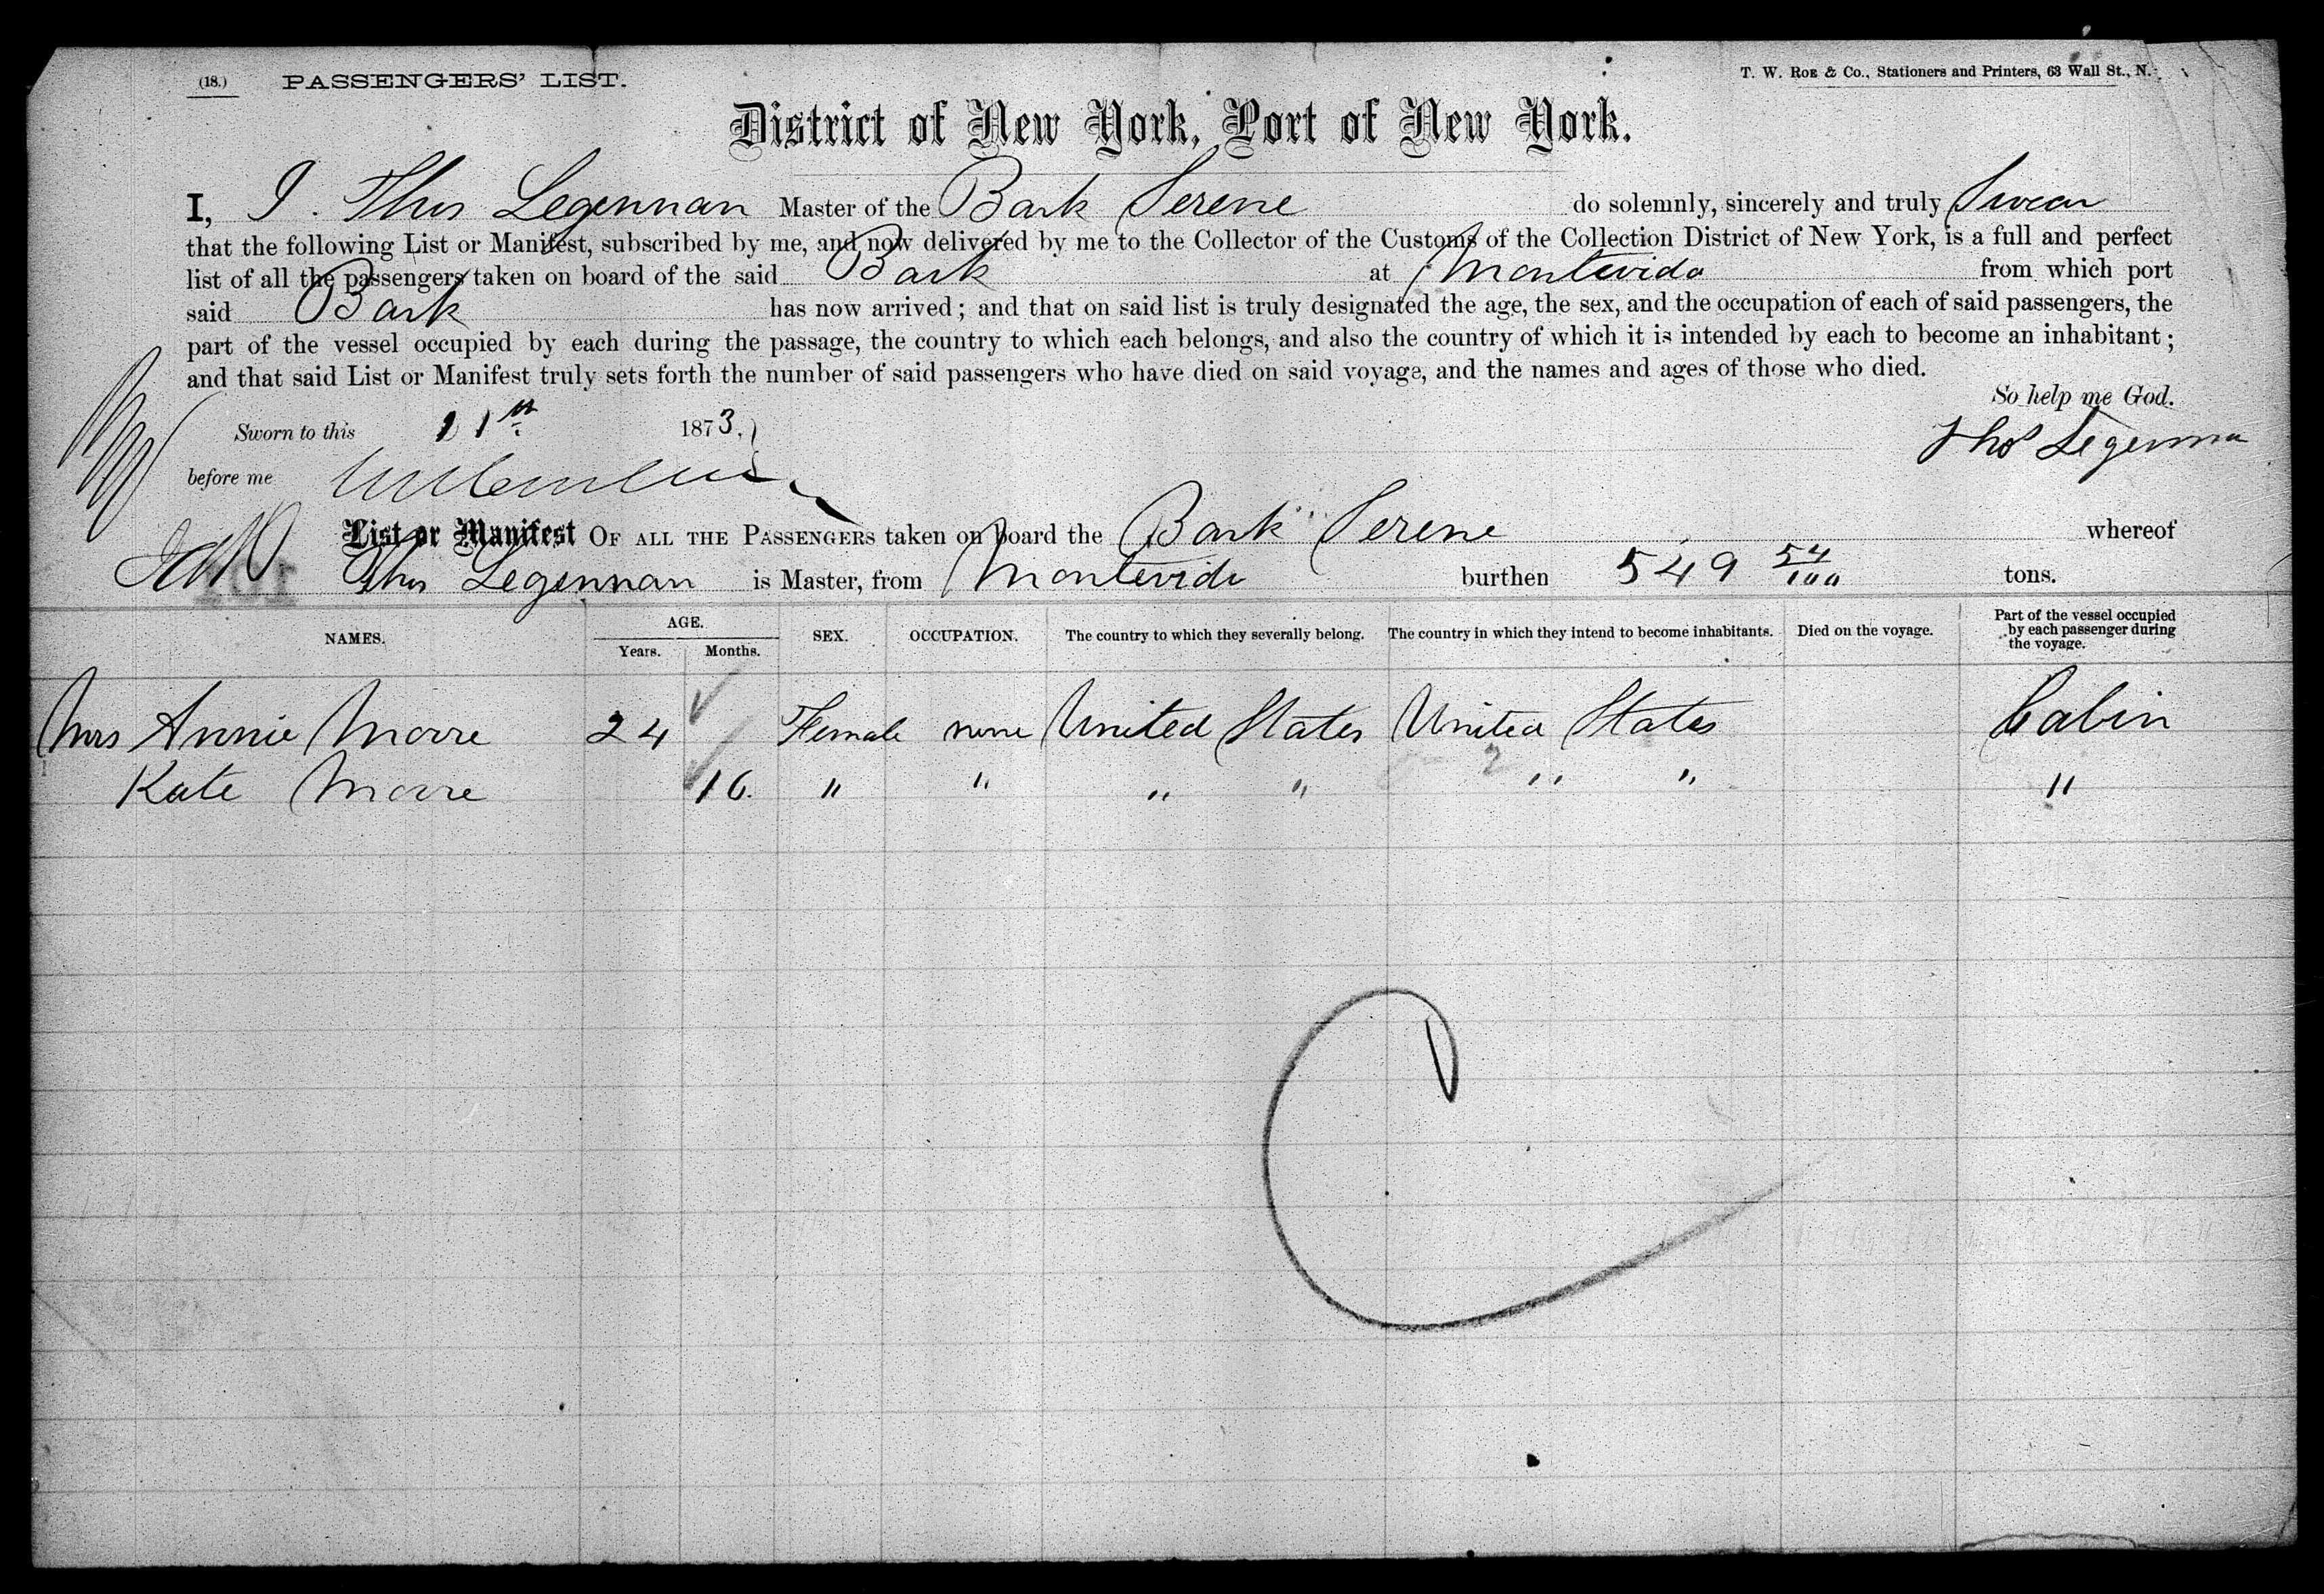 (18.) PASSENGERS' LIST. T. W. ROE & Co., Stationers and Printers, 63 Wall St., N.
District of New York, Port of New York.
I, I. Thos Legennan Master of the Bark Serene do solemnly, sincerely and truly Swear
that the following List or Manifest, subscribed by me, and now delivered by me to the Collector of the Customs of the Collection District of New York, is a full and perfect
list of all the passengers taken on board of the said Bark at Montevido from which port
said Bark has now arrived; and that on said list is truly designated the age, the sex, and the occupation of each of said passengers, the
part of the vessel occupied by each during the passage, the country to which each belongs, and also the country of which it is intended by each to become an inhabitant;
and that said List or Manifest truly sets forth the number of said passengers who have died on said voyage, and the names and ages of those who died.
So help me God.
Sworn to this 11th 1873.
Thos
before me
List or Manifest OF ALL THE PASSENGERS taken on board the Bark Serene whereof
Thos Legennan is Master, from Montevido burthen 549 54/100 tons.
NAMES. AGE. SEX. OCCUPATION. The country to which they severally belong. The country in which they intend to become inhabitants. Died on the voyage. Part of the vessel occupied by each passenger during the voyage.
Years. Months.
Mrs Annie Moore 24 Female none United States United States Cabin
2
Kate Moore 16. " " " " " " "